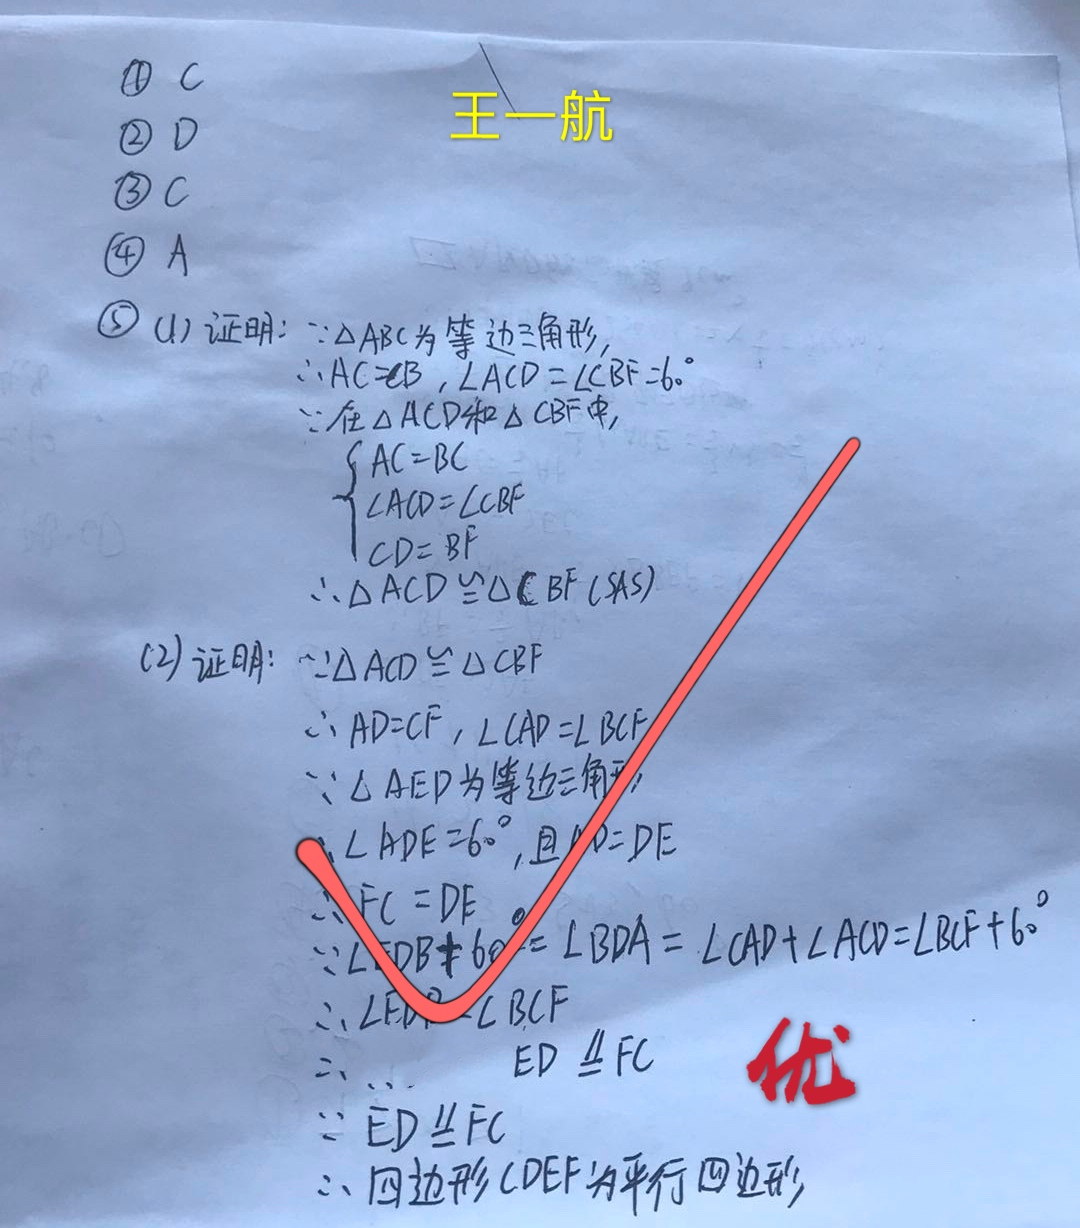 ① C
王一航
② D
③ C
④ A
⑤ (1) 证明: ∵△ABC为等边三角形,
∴AC=CB, ∠ACD=∠CBF=60°
∵在△ACD和△CBF中,
AC=BC
∠ACD=∠CBF
CD=BF
∴△ACD≌△CBF(SAS)
(2) 证明: ∵△ACD≌△CBF
∴AD=CF, ∠CAD=∠BCF
∵△AED为等边三角形
∴∠ADE=60°, 且AD=DE
∴FC=DE
∵∠EDB+60°=∠BDA=∠CAD+∠ACD=∠BCF+60°
∴∠EDB=∠BCF
∴... ED∥=FC
优
∵ED∥=FC
∴四边形CDEF为平行四边形